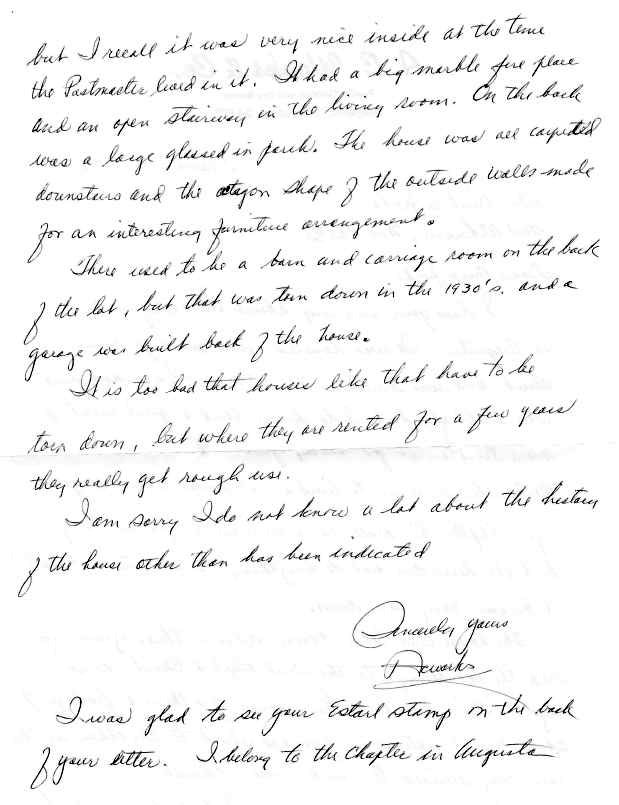 but I recall it was very nice inside at the time
the Postmaster lived in it. It had a big marble fire place
and an open stairway in the living room. On the back
was a large glassed in porch. The house was all carpeted
downstairs and the octagon shape of the outside walls made
for an interesting furniture arrangement.
There used to be a barn and carriage room on the back
of the lot, but that was torn down in the 1930's. and a
garage was built back of the house.
It is too bad that houses like that have to be
torn down, but where they are rented for a few years
they really get rough use.
I am sorry I do not know a lot about the history
of the house other than has been indicated
Sincerely yours
I was glad to see your Estarl stamp on the back
of your letter. I belong to the Chapter in Augusta